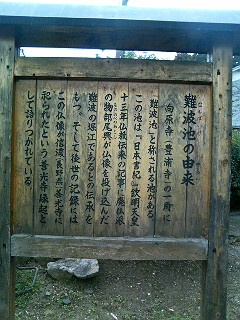 難波池の由来
向原寺(豊浦寺)の一廓に
難波池と称される池がある。
この池は「日本書紀」欽明天皇
十三年仏教伝来の記事に廃仏派
の物部尾興が仏像を投げ込んだ
難波の堀江であるとの伝承を
もつ。そして後世の記録には
この仏像が信濃長野県善光寺に
祀られたという善光寺縁起と
して語りつがれている。